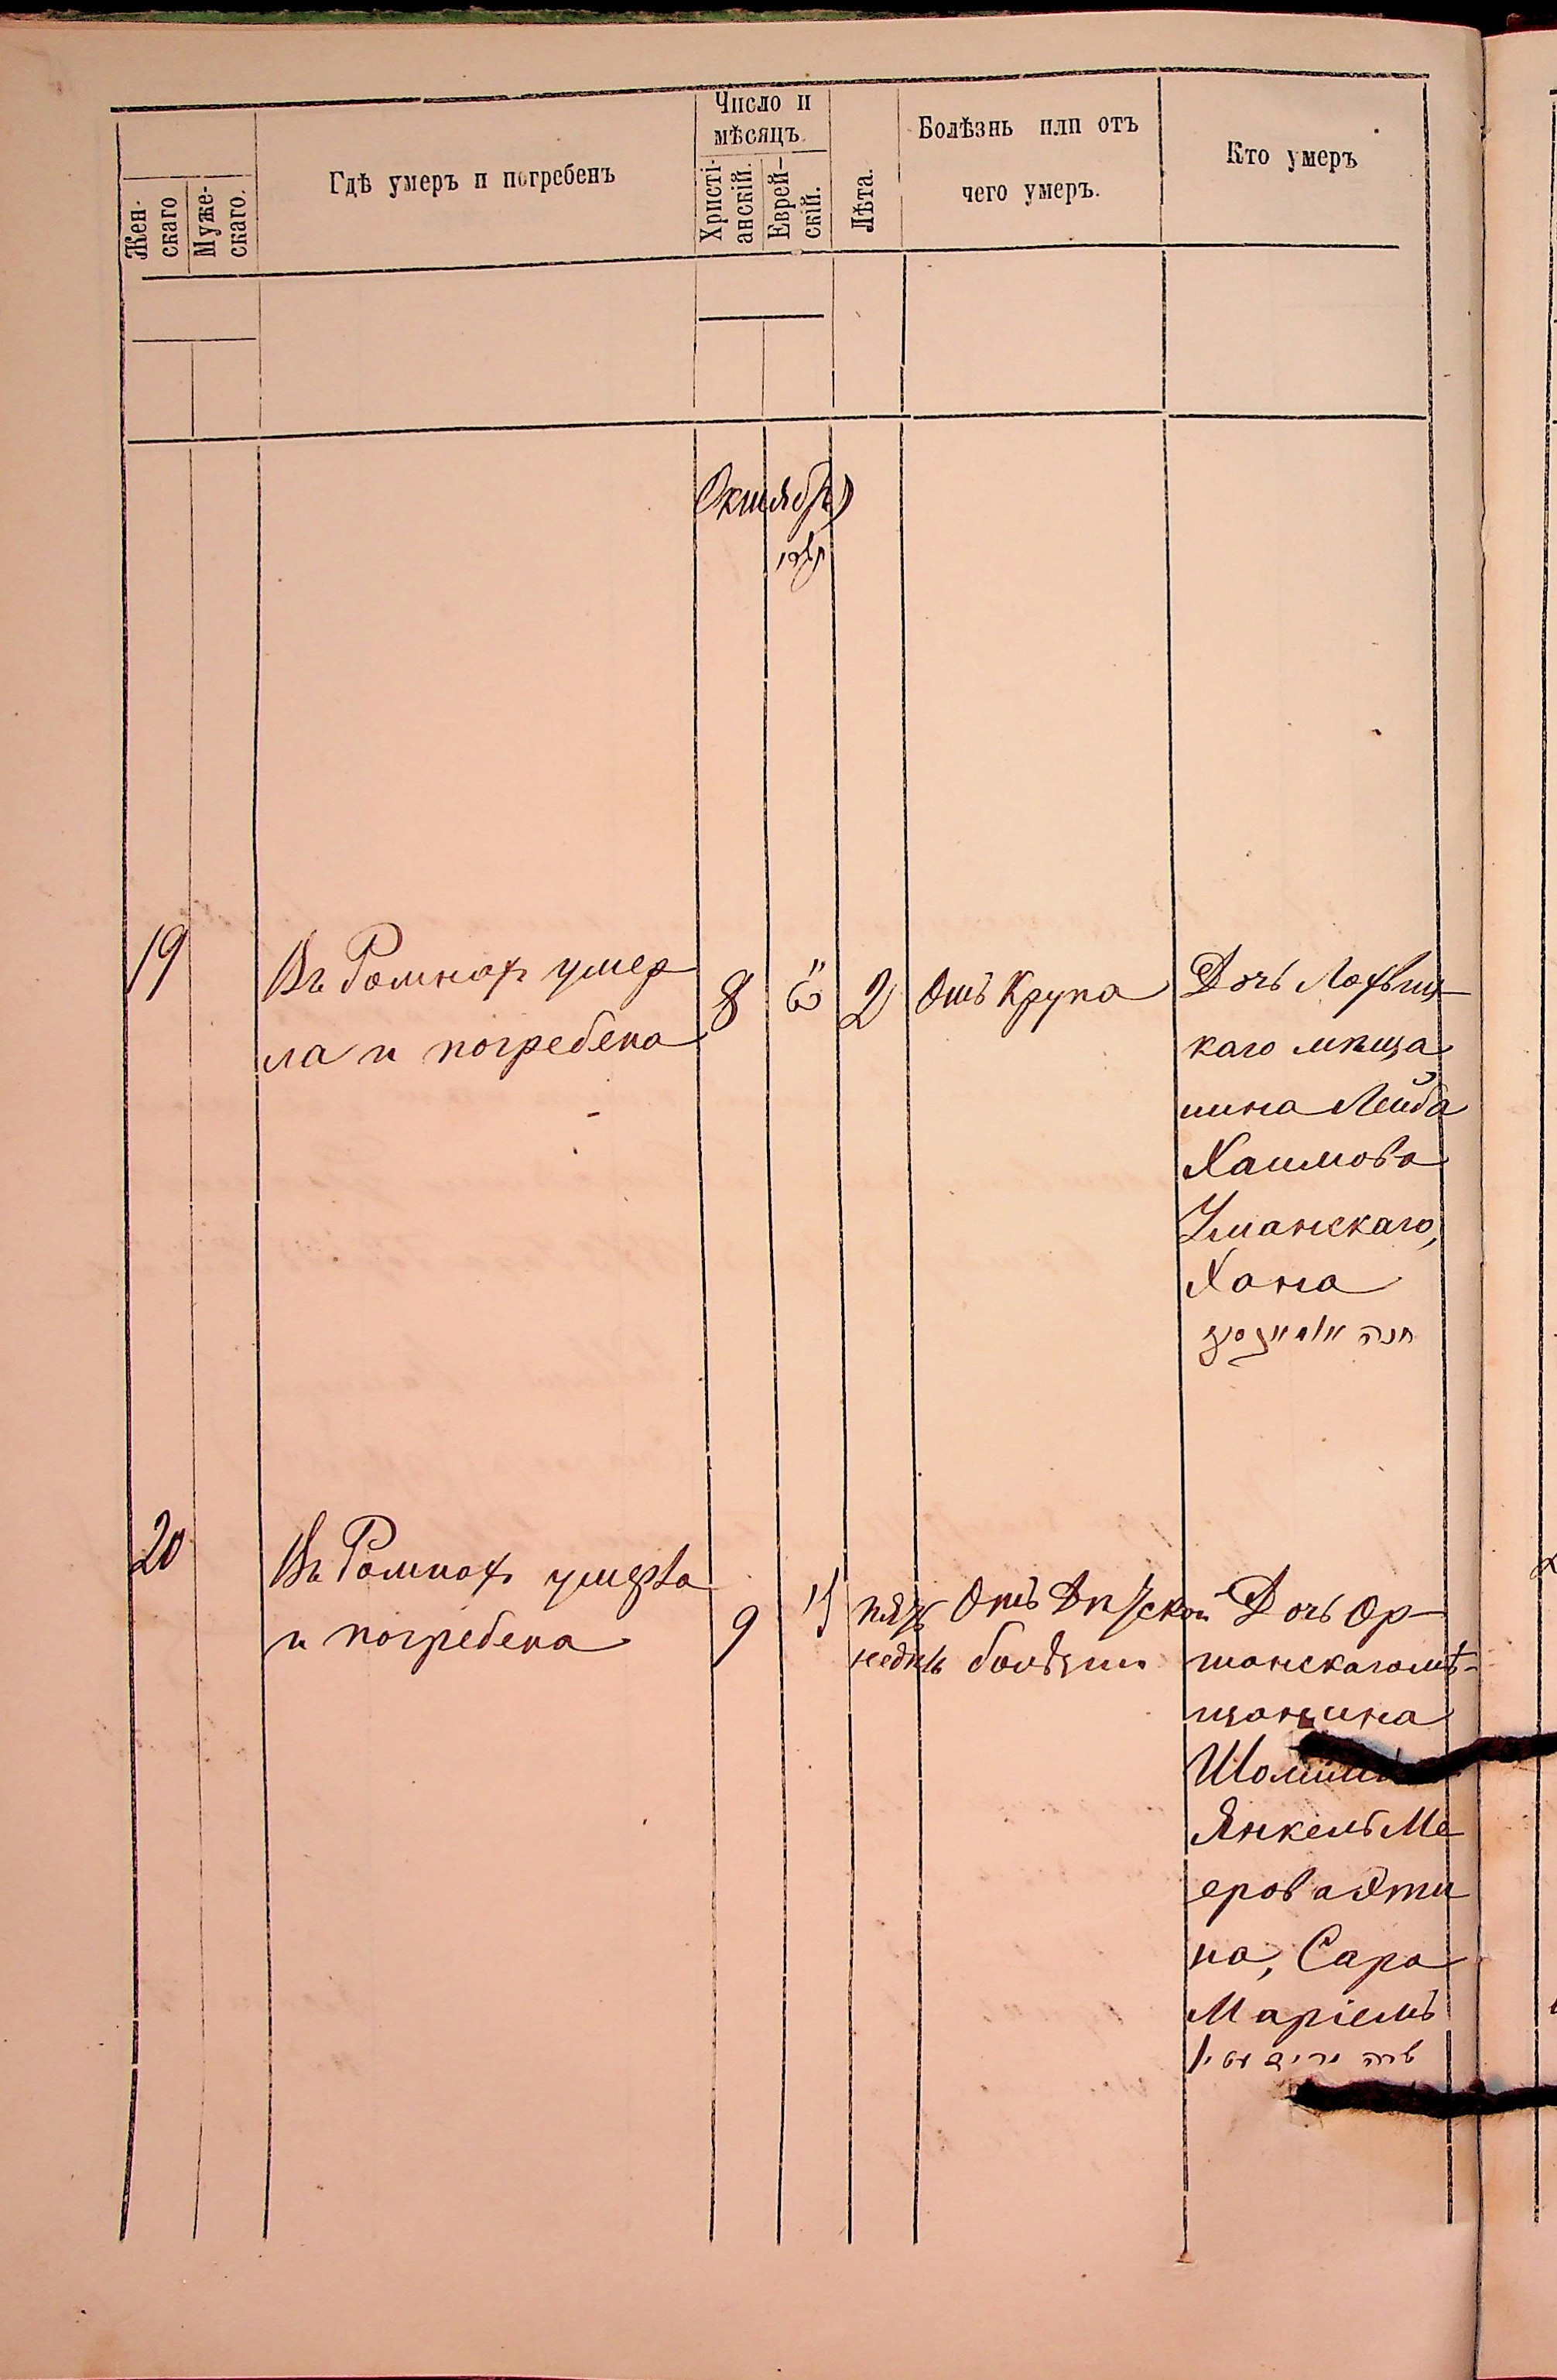 Жен-
скаго
Муже-
скаго.
Гдѣ умеръ и погребенъ
Число и
мѣсяцъ.
Христі-
анскій.
Еврей-
скій.
Лѣта.
Болѣзнь или отъ
чего умеръ.
Кто умеръ
Октябрь
תשרי
19
Въ Ромнахъ умер
ла и погребена
8
2
Отъ Крупа
Дочь Лохвиц
каго мѣща
нина Лейба
Хаимова
Уманскаго,
Хана
חנה
20
Въ Ромнахъ умерла
и погребена
9
пять
недѣль
Отъ Дѣтской
болѣзни
Дочь Ор-
шанскаго мѣ-
щанина
Янкель Ме
ерова Эти
на, Сара
Маріемъ
שרה מרים